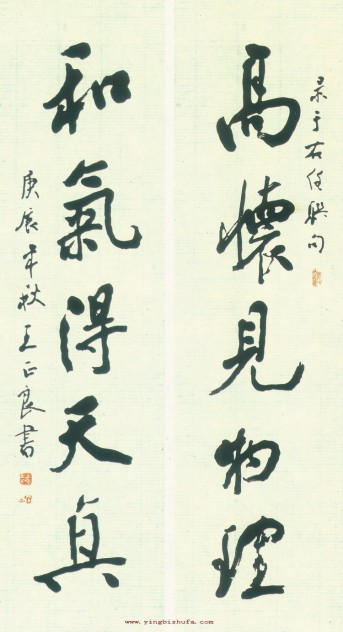 录于右任联句
高懷見物理
和氣得天真
庚辰年秋王正良書
www.yingbishufa.com